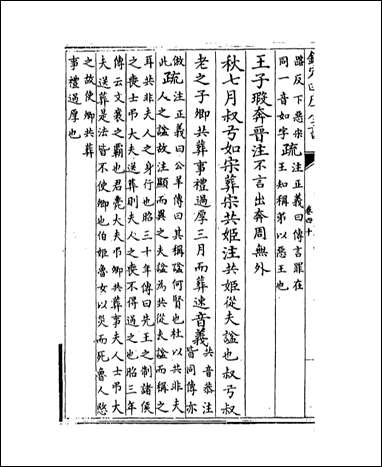 欽定四庫全書
卷四十
蹈反下惡宋疏注正義曰傳言罪在
同一音如字疏王知稱弟以惡王也
王子瑕奔晉注不言出奔周無外
秋七月叔弓如宋葬宋共姬注共姬從夫諡也叔弓叔
老之子卿共葬事禮過厚三月而葬速音義共音恭注
皆同傳亦
倣此疏注正義曰公羊傳曰其稱諡何賢也杜以共非夫
人之諡故注顯而異之夫諡為共從夫諡而稱之
耳共非夫人之身行也昭三十年傳曰先王之制諸侯
之喪士弔大夫送葬則夫人之喪不得過之也昭三年
傳云文襄之霸也君薨大夫弔卿共葬事夫人士弔大
夫送葬是法皆不使卿也伯姬魯女以災而死魯人愍
之故使卿共葬
事禮過厚也